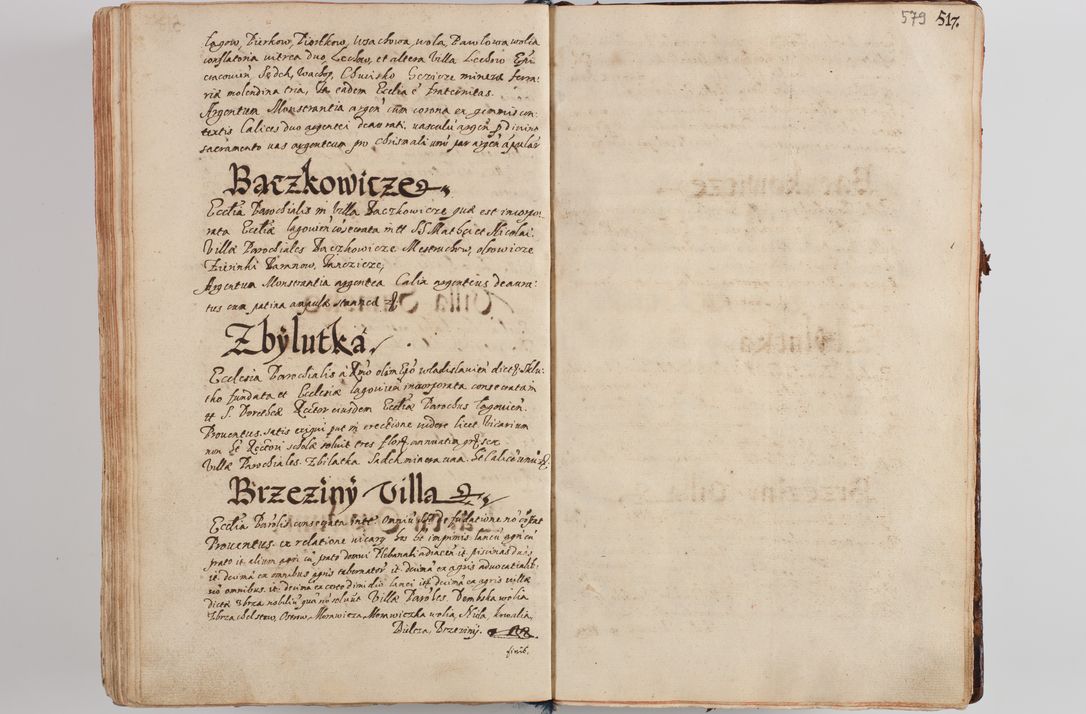 579 517.
Łagow, Zierkow, Piotrkow, Wszachowa, wola, Pawlowa wolia
conflatoria vitrea duo, Lechow, et altera Villa Lechow Epi
cracovien Sędek, Wachop, Chwisko Geczicze minera ferra:
ria molendina tria, In eadem Ecclia e fraternitas.
Argentum Monstrantia argen cum corona ex gemmis con:
textis Calices duo argentei deaurati, vasculu argen p divino
sacramento vas argenteum pro Chrismali uni par argen apular
Baczkowicze
Ecclia Parochialis in Villa Baczkowicze quæ est incorpo:
rata Eccliæ lagovien cosecrata in tt SS Mathei et Nicolai
Villæ Parochiales Baczkowicze Mestruchow, olsowicze
Zierinki Baranow, Janczicze,
Argentum Monstrantia argentea Calix argenteus deaura:
tus cum patina ampulæ stanneæ
Zbylutka
Ecclesia Parochialis a Rmo olim Epo wladislavien
cko fundata et Ecclesiæ lagovien incorporata consecrata in
tt S. Dorotheæ Rector eiusdem Eccliæ Parochus lagovien
Proventus satis exigui put in erectione videre licet Vicarium
non he Rectori scholæ soluit tres flor annuatim
Villæ Parochiales Zbilutka Sadek minera una
Brzeziny Villa
Ecclia Parolis consecrata in tt Omniu de fudatione no costat
Proventus ex relatione vicary hos he imprimis laneu agri cu
prato it. alium agri cu prato domui Plebanali adiacen it piscinas duas
it. decima ex omnibus agris tabernator it. decima ex agris advocatialib
no omnibus it. decima ex cocto dimidio lanei it decima ex agris villæ
dictæ Zbrza nobiliu qua no solvut Villæ Paroles Dembska wolia
Zbrza Belstow, Ostrow, Morawicza, Morawiczka wolia, Niba, kowalia,
Bilcza, Brzeziny.
finis.